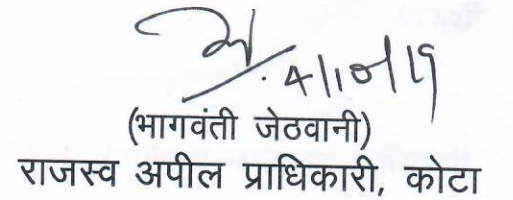 4/10/19
(भागवंती जेठवानी)
राजस्व अपील प्राधिकारी, कोटा